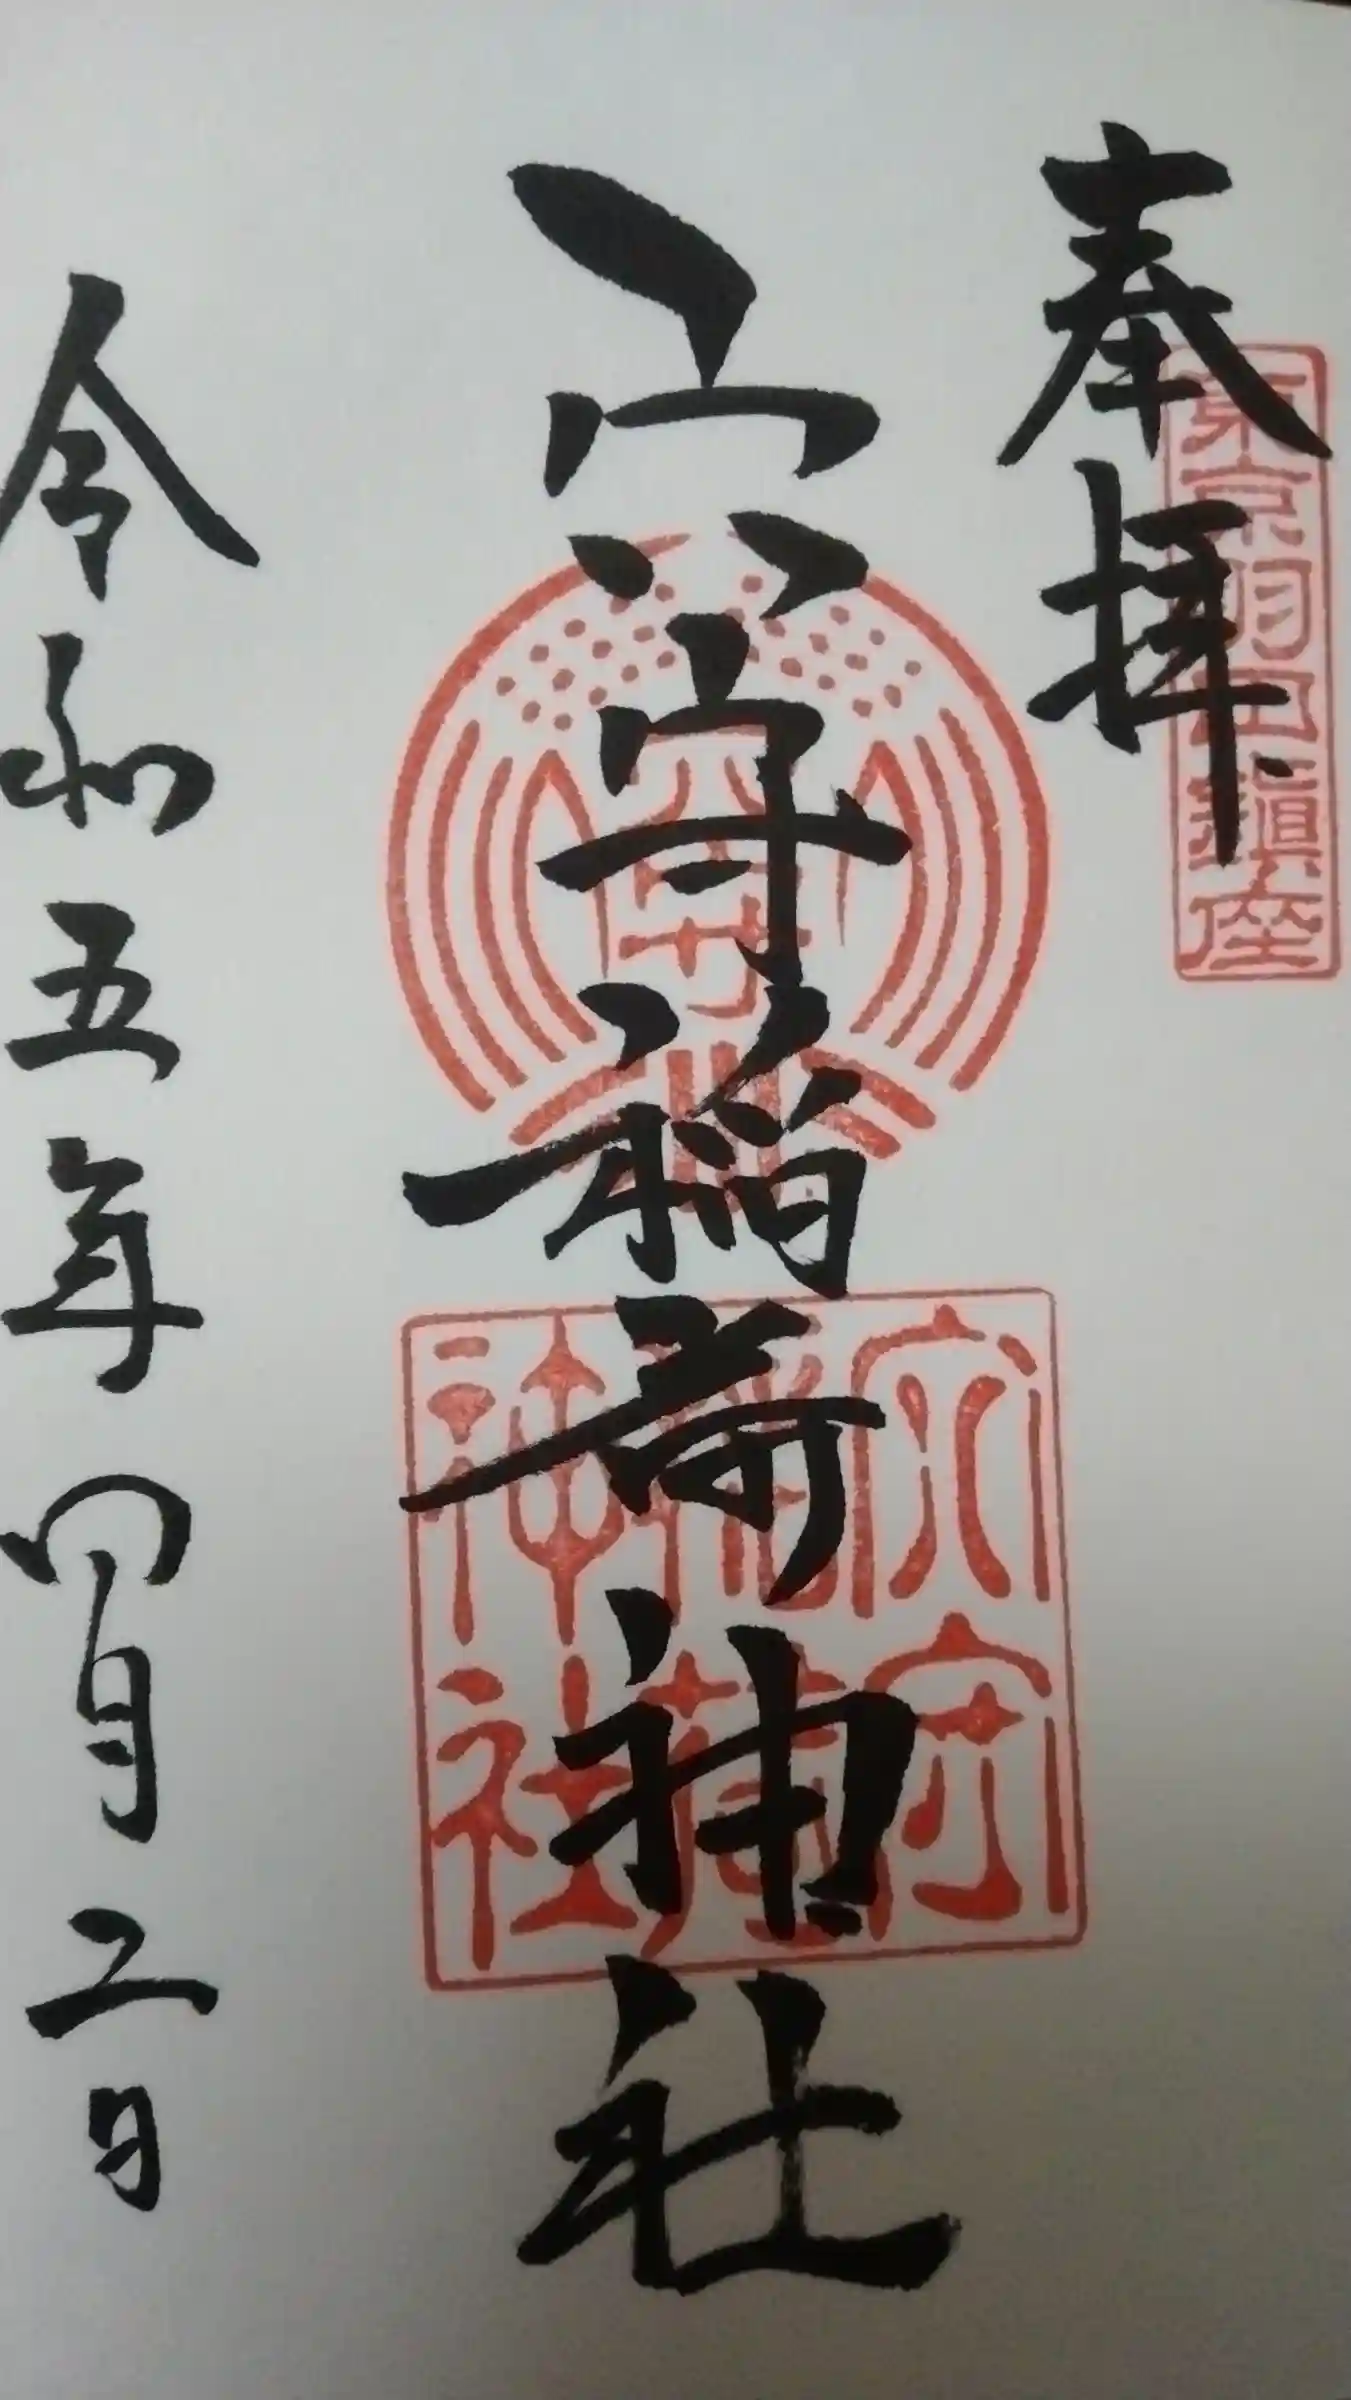 奉拝
東京羽田鎮座
穴守稲荷神社
穴守
穴守
稲荷
神社
令和五年四月二日